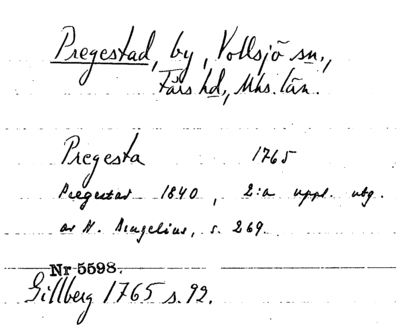 Pregestad, by, Vollsjö sn.,
Färs hd., Mhs. län.
Pregesta 1765
Pregestad 1840, 2:a uppl. utg.
av N. Bruzelius, s. 269.
Nr 5598.
Gillberg 1765 s. 92.